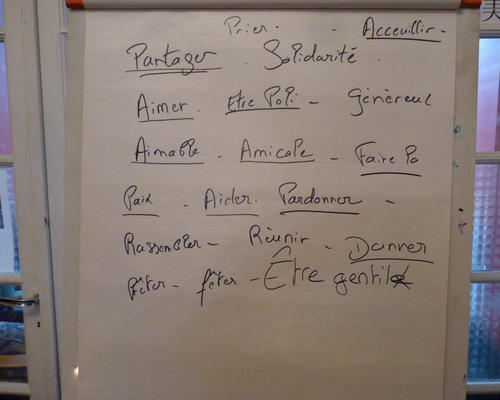 Prier - - Acceuillir -
Partager . Solidarité .
Aimer . Etre Poli - Généreux
Aimable . Amicale - Faire la
Paix - Aider . Pardonner -
Rassembler - Réunir - Donner
fêter - Être gentil